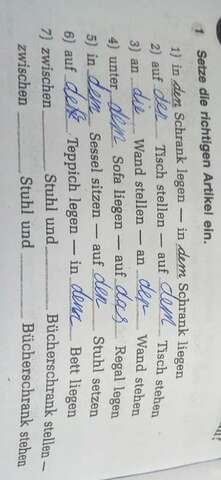 1 Setze die richtigen Artikel ein.
1) in den Schrank legen — in dem Schrank liegen
2) auf den Tisch stellen — auf dem Tisch stehen
3) an die Wand stellen — an der Wand stehen
4) unter dem Sofa liegen — auf das Regal legen
5) in dem Sessel sitzen — auf den Stuhl setzen
6) auf Teppich legen — in dem Bett liegen
7) zwischen ______ Stuhl und ______ Bücherschrank stellen —
zwischen ______ Stuhl und ______ Bücherschrank stehen